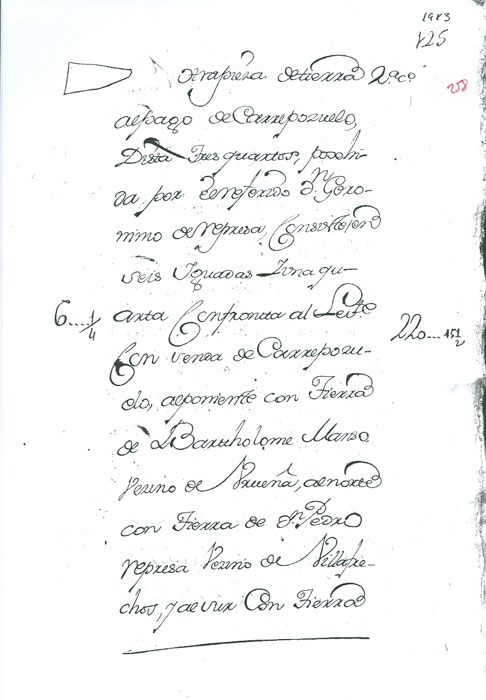 1983
125
258
Otra pieza de tierra 2ª cª
al pago de Carrepozuelo,
Dista Tres quartos, posehi-
da por el referido dn Gero-
nimo de represa, Consiste en
seis Yguadas Y una qu-
6....1/4 arta Confronta al Leste 220....151/2
Con senda de Carrepozu-
elo, al poniente con Tierra
de Bartholome Manso
Vezino de Urueña, al norte
con Tierra de Sn Pedro
represa Vezino de Villafre-
chos, y al sur Con Tierra